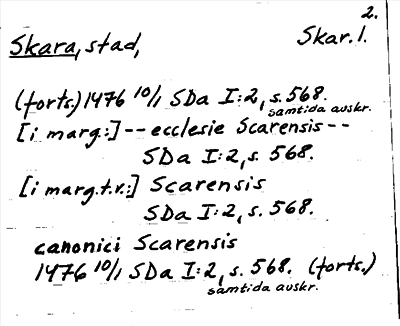 2.
Skara, stad,
Skar. 1.
(forts.) 1476 10/1 SDa I:2, s. 568.
samtida avskr.
[i marg.:] -- ecclesie Scarensis --
SDa I:2, s. 568.
[i marg. t.v.:] Scarensis
SDa I:2, s. 568.
canonici Scarensis
1476 10/1 SDa I:2, s. 568. (forts.)
samtida avskr.